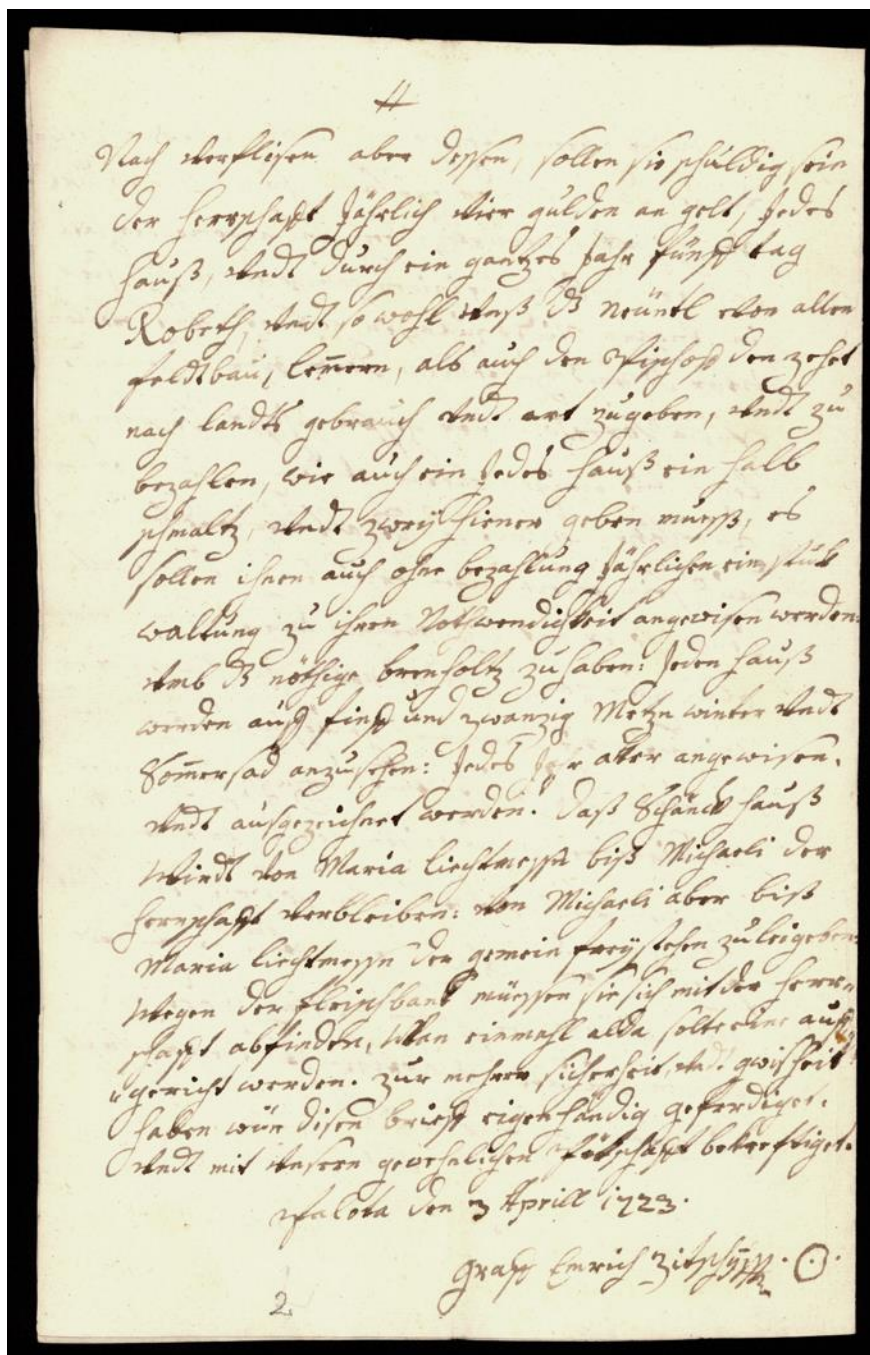 Nach verflisen aber dessen, sollen sie schuldig sein
der herrschafft Jährlich vier gulden an gelt, Jedes
hauß, vndt durch ein gantzes Jahr fünff tag
Robeth, vndt so wohl vnß dz neüntl von allen
feldtbau, lemern, als auch den Pischoff den zehet
nach landts gebrauch vndt art zugeben, vndt zu
bezahlen, wie auch ein Jedes hauß ein halb
schmaltz, vndt zweÿ hiener geben muess, es
sollen ihnen auch ohne bezahlung Jährlichen ein stuk
waltung zu ihren Nothwendichkeit angewisen werden:
vmb dz nöthige brenholtz zu haben: Jeden hauß
werden auff finff und zwanzig Metzn winter vndt
Somersad anzusehen: Jedes aker angewisen,
vndt ausgezeichnet werden: daß Schänckhauß
wirdt von Maria liechtmessn biß Michaeli der
herrschafft verbleiben: von Michaeli aber biß
Maria liechtmessn der gemein freÿstehen zu leigeben:
wegen der fleischbank müessen sie sich mit der herr-
schafft abfinden, wan einmahl alda solte eine auff
gericht werden. zur mehrer sicherheit, vndt gwisheit
haben wür disen brieff eigenhändig geferdiget,
vndt mit vnsern gewehnlichen Pötschafft bekrefftiget.
Palota den 3 Aprill 1723.
Graff Emrich Zitschÿ
2